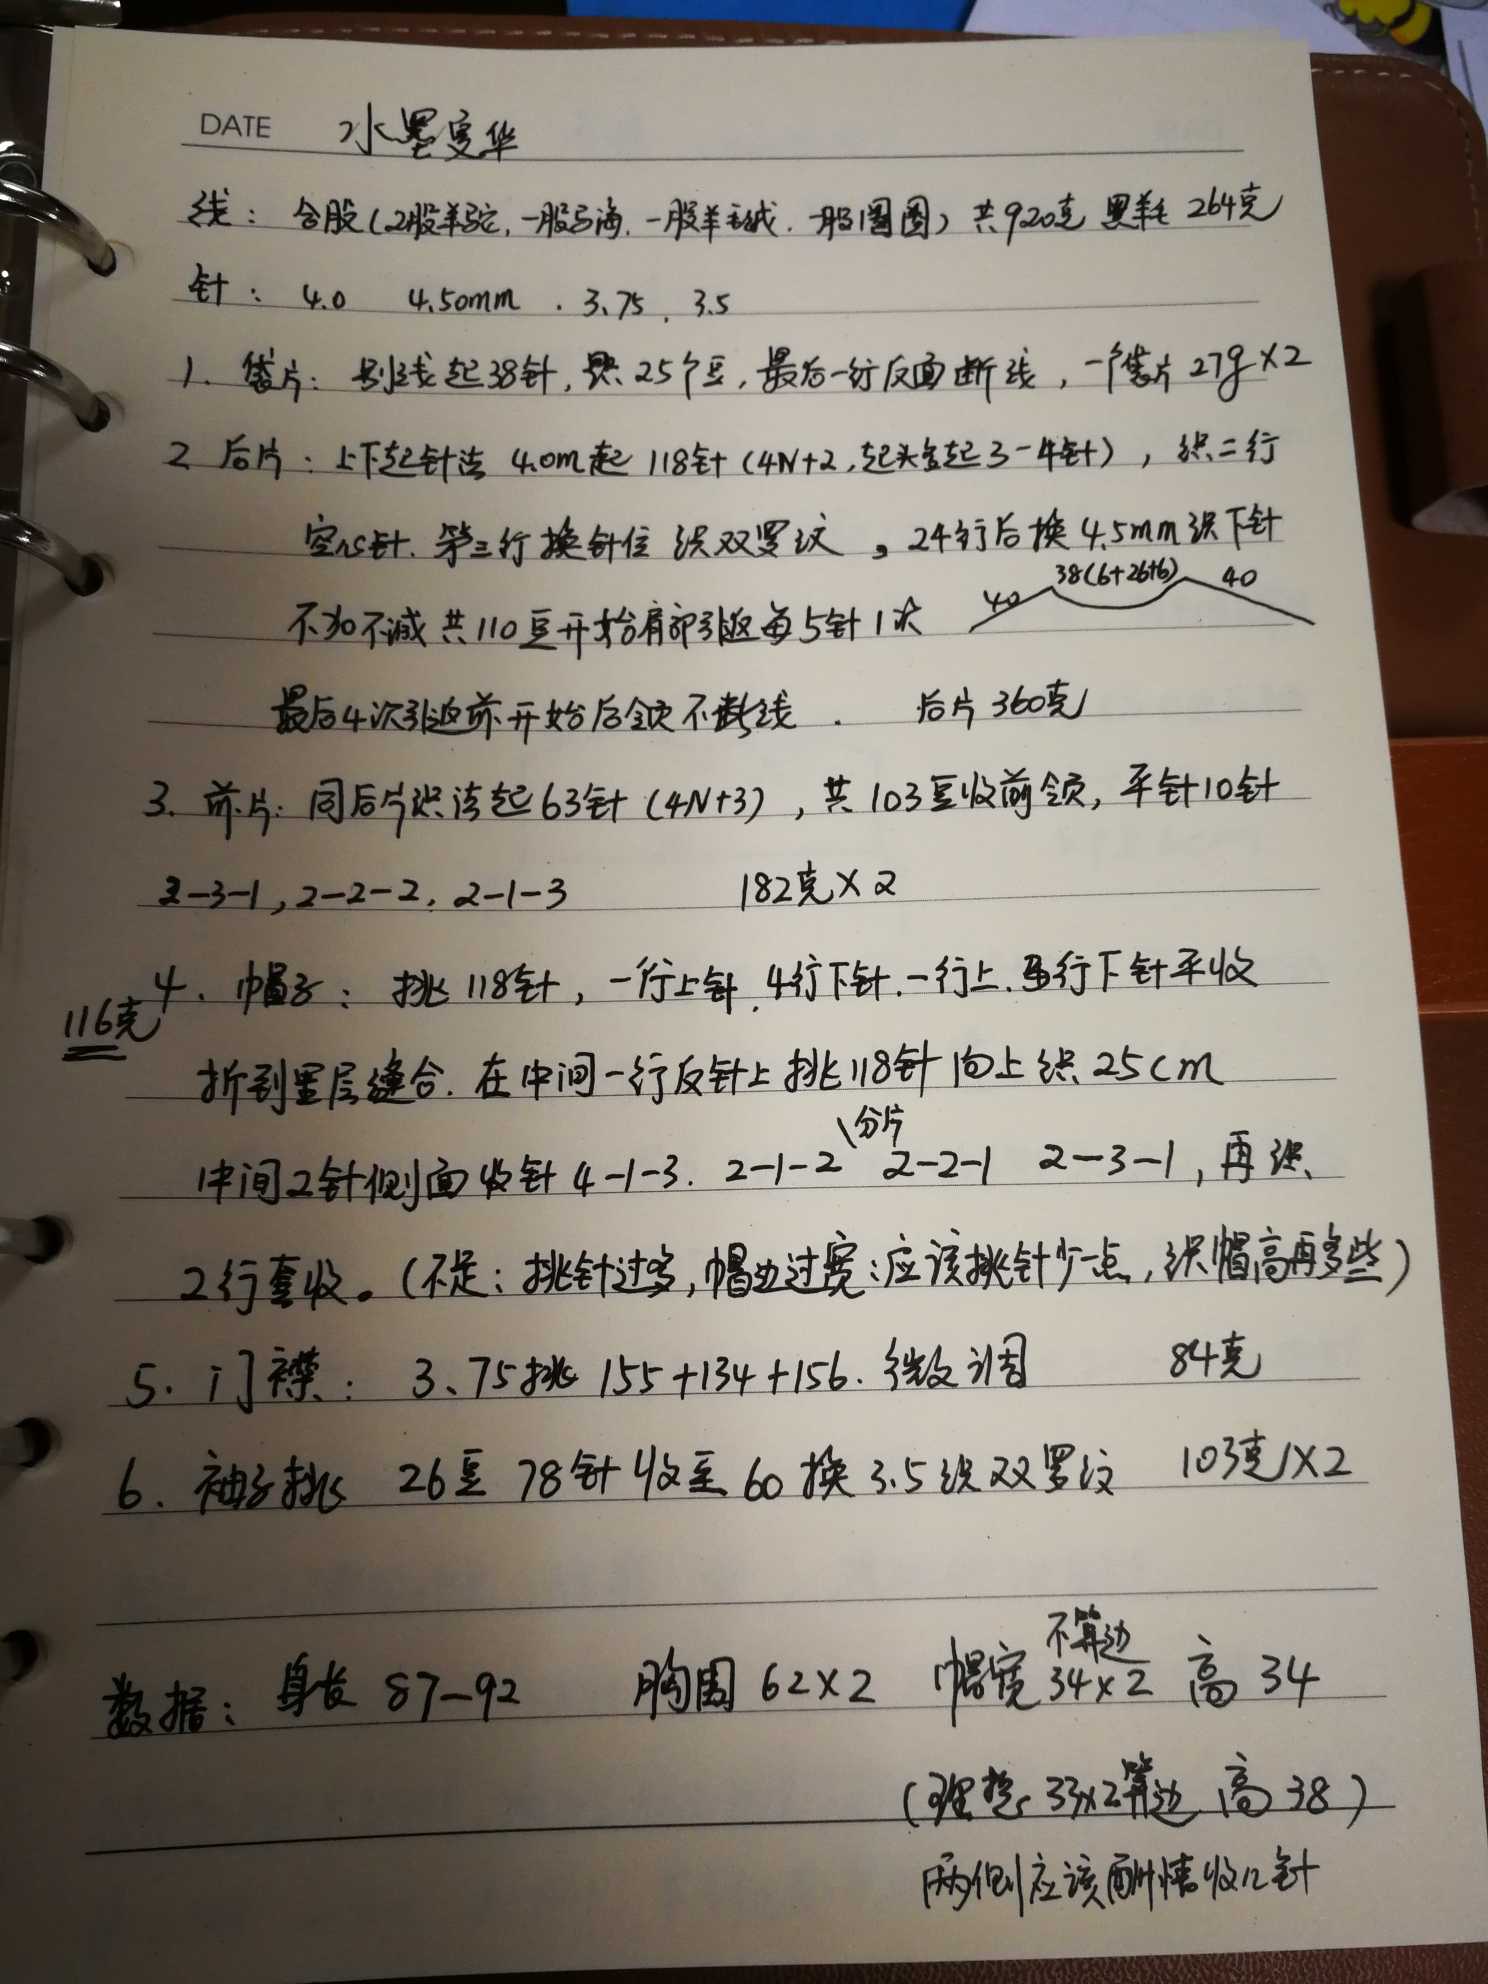 DATE 水墨变华
线：合股(2股羊驼,一股马海.一股羊毛绒.一股圈圈)共920克 黑羊毛 264克
针：4.0 4.50mm . 3.75 . 3.5
1. 袋片：别线起38针,织25个豆,最后一行反面断线,一个袋片27g×2
2 后片：上下起针法 4.0m起118针(4N+2,起头多起3-4针),织二行
空心针.第三行换针位 织双罗纹,24行后换4.5mm织下针
38(6+26+6)
40 40
不加不减共110豆开始肩部引返每5针1次
最后4次引返前开始后领不断线. 后片360克
3. 前片：同后片织法起63针(4N+3),共103豆收前领,平针10针
2-3-1,2-2-2,2-1-3 182克×2
4. 帽子：挑118针,一行上针.4行下针.一行上.5行下针平收
116克
折到里层缝合.在中间一行反针上挑118针向上织25cm
分片
中间2针侧面收针4-1-3. 2-1-2 2-2-1 2-3-1,再织
2行套收。(不足：挑针过多,帽边过宽;应该挑针少一点,织帽高再多些)
5. 门襟：3.75挑155+134+156.微调 84克
6. 袖子挑 26豆 78针收至60换3.5织双罗纹 103克×2
不算边
数据：身长 87-92 胸围62×2 帽宽34×2 高34
(理想 33×2算边 高38)
两侧应该酌情收几针